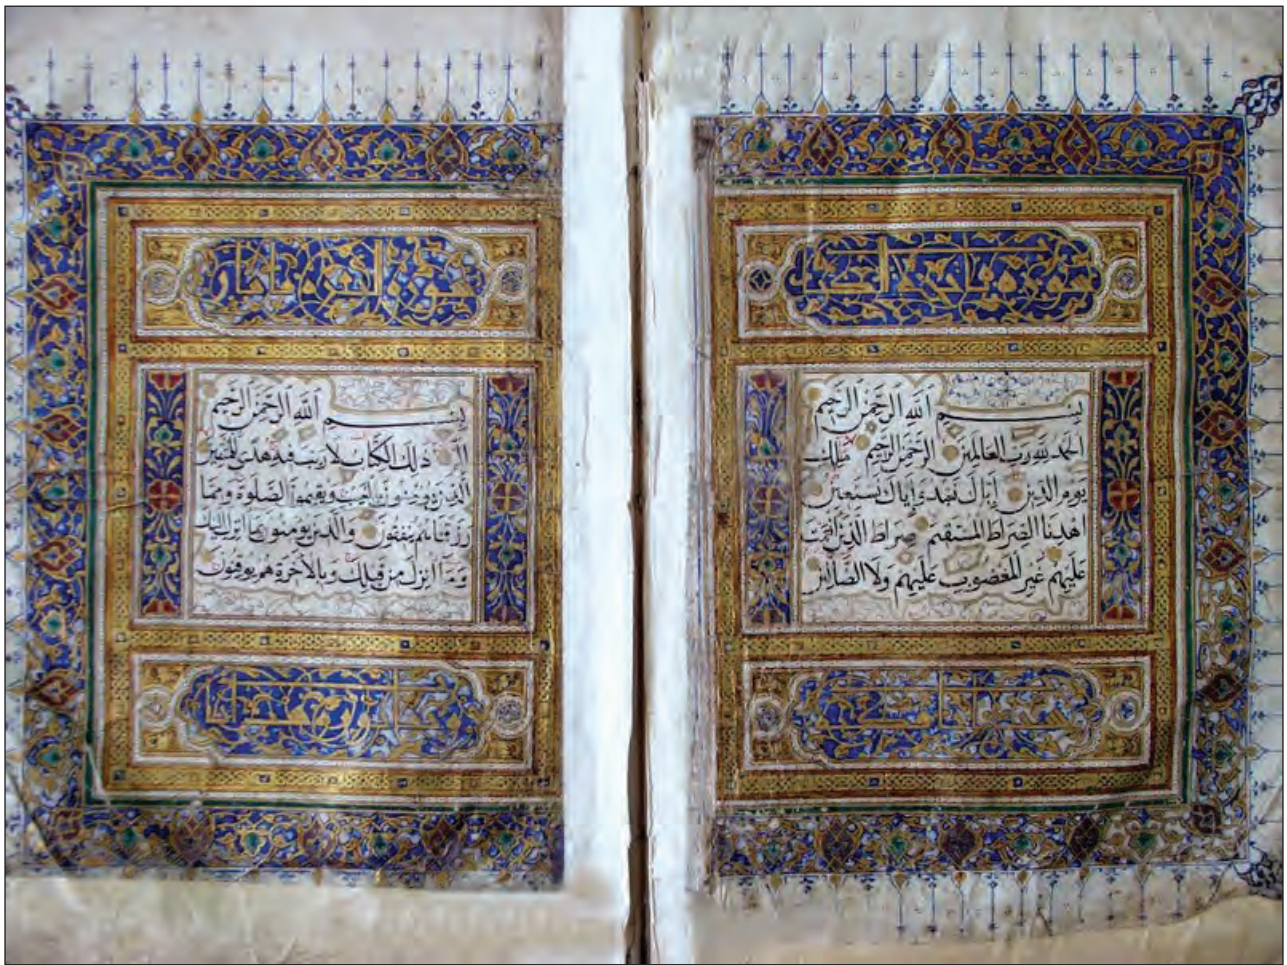 سورة فاتحة الكتاب
بِسْمِ اللَّهِ الرَّحْمَنِ الرَّحِيمِ
الْحَمْدُ لِلَّهِ رَبِّ الْعَالَمِينَ الرَّحْمَنِ الرَّحِيمِ مَلِكِ
يَوْمِ الدِّينِ إِيَّاكَ نَعْبُدُ وَإِيَّاكَ نَسْتَعِينُ
اهْدِنَا الصِّرَاطَ الْمُسْتَقِيمَ صِرَاطَ الَّذِينَ أَنْعَمْتَ
عَلَيْهِمْ غَيْرِ الْمَغْضُوبِ عَلَيْهِمْ وَلَا الضَّالِّينَ
سورة البقرة
بِسْمِ اللَّهِ الرَّحْمَنِ الرَّحِيمِ
الم ذَلِكَ الْكِتَابُ لَا رَيْبَ فِيهِ هُدًى لِلْمُتَّقِينَ
الَّذِينَ يُؤْمِنُونَ بِالْغَيْبِ وَيُقِيمُونَ الصَّلَوةَ وَمِمَّا
رَزَقْنَاهُمْ يُنْفِقُونَ وَالَّذِينَ يُؤْمِنُونَ بِمَا أُنْزِلَ إِلَيْكَ
وَمَا أُنْزِلَ مِنْ قَبْلِكَ وَبِالْآخِرَةِ هُمْ يُوقِنُونَ